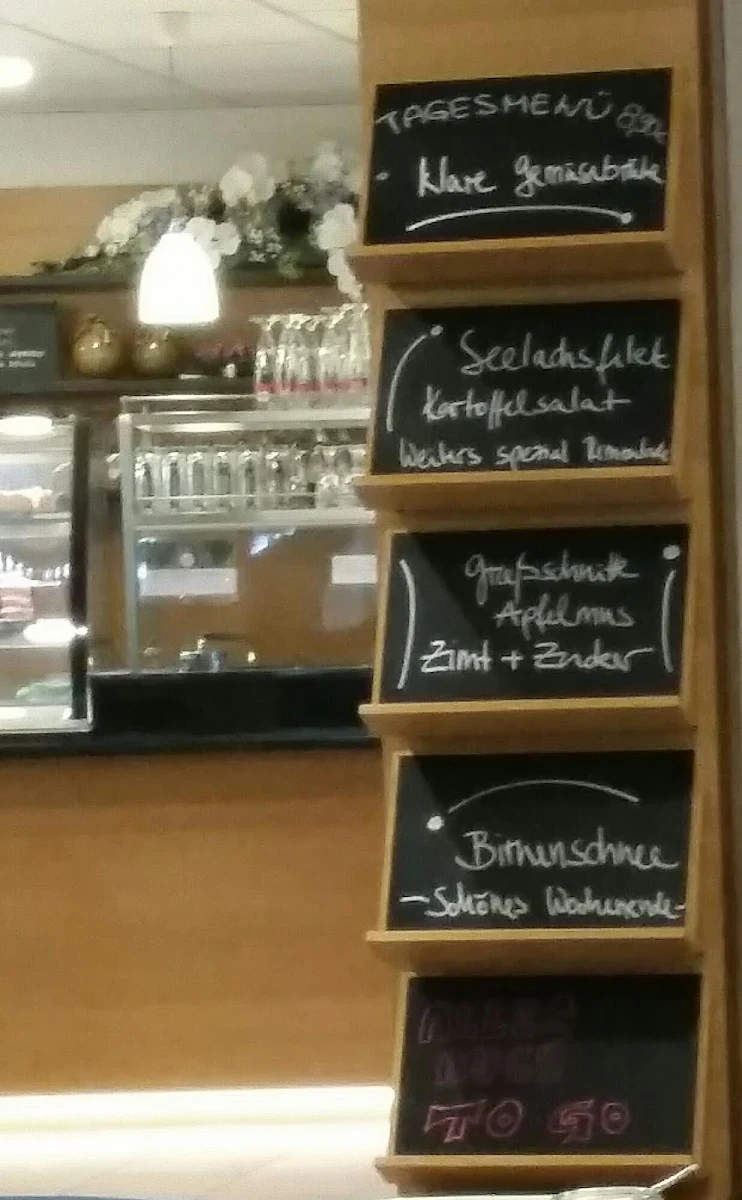 TAGESMENÜ 8,90€
klare Gemüsebrühe
Seelachsfilet
Kartoffelsalat
spezial Remoulade
Grießschnitte
Apfelmus
Zimt + Zucker
Birnenschnee
- Schönes Wochenende -
ALLES
AUCH
TO GO